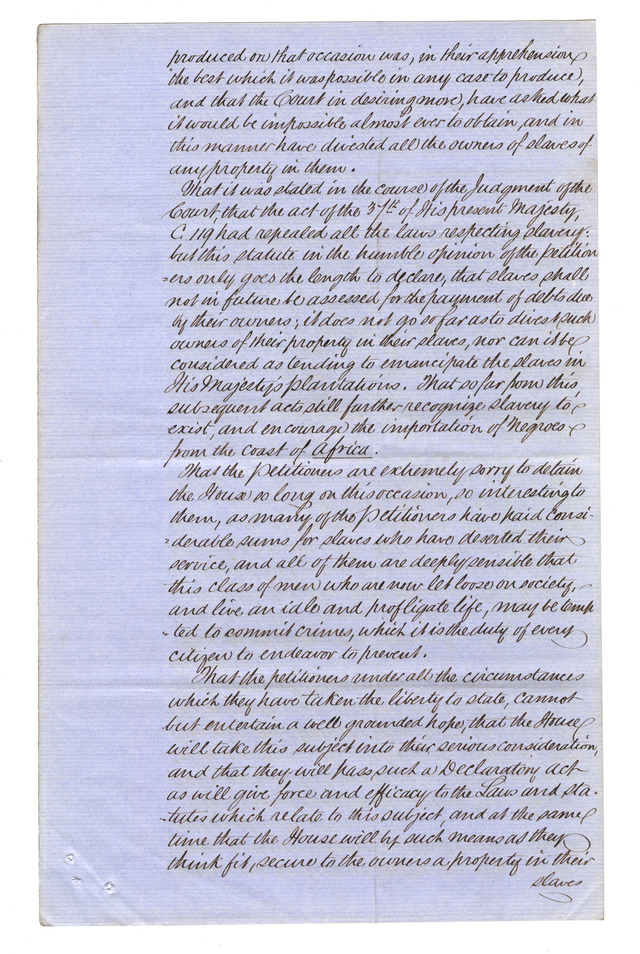 produced on that occasion was, in their apprehension
the best which it was possible in any case to produce,
and that the Court in desiring more, have asked what
it would be impossible almost ever to obtain, and in
this manner have divested all the owners of slaves of
any property in them.
That it was stated in the course of the Judgment of the
Court, that the act of the 37th of His present Majesty,
C. 119 had repealed all the laws respecting slavery:
but this statute in the humble opinion of the petition
=ers only goes the length to declare, that slaves shall
not in future be assessed for the payment of debts due
by their owners; it does not go so far as to divest such
owners of their property in their slaves, nor can it be
considered as tending to emancipate the slaves in
His Majesty's plantations. That so far from this
subsequent acts still further recognize slavery to
exist, and encourage the importation of Negroes
from the coast of Africa.
That the Petitioners are extremely sorry to detain
the House so long on this occasion, so interesting to
them, as many of the Petitioners have paid consi-
=derable sums for slaves who have deserted their
service, and all of them are deeply sensible that
this class of men who are now let loose on society,
and live an idle and profligate life, may be temp
-ted to commit crimes, which it is the duty of every
citizen to endeavor to prevent.
That the petitioners under all the circumstances
which they have taken the liberty to state, cannot
but entertain a well grounded hope, that the House
will take this subject into their serious consideration,
and that they will pass such a Declaratory act
as will give force and efficacy to the Laws and sta-
-tutes which relate to this subject, and at the same
time that the House will by such means as they
think fit, secure to the owners a property in their
slaves